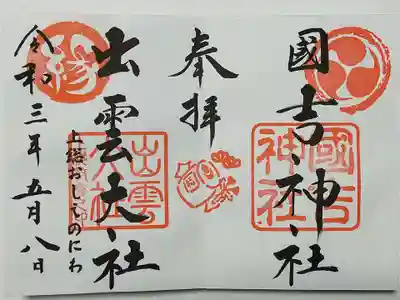 國吉神社
國吉神社
奉拝
出雲大社
出雲大社
上総おしどのにわ
令和三年五月八日